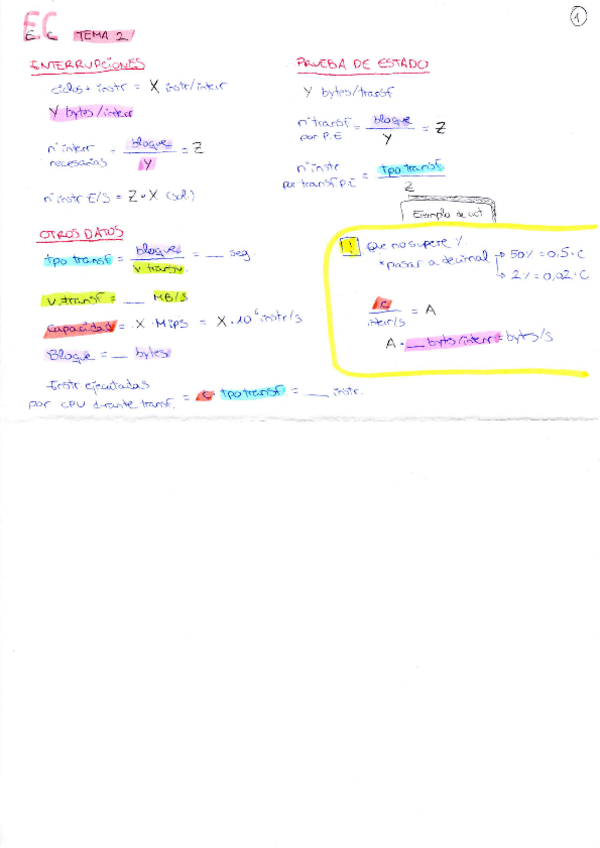 1
EC
E.C TEMA 2
INTERRUPCIONES
ciclos + instr = X instr/interr
Y bytes/interr
nº interr necesarias = bloque / Y = Z
nº instr E/S = Z · X (sol.)
PRUEBA DE ESTADO
Y bytes/transf
nº transf por P.E = bloque / Y = Z
nº instr por transf P.E = tpo transf / Z
Ejemplo de uct
OTROS DATOS
tpo transf = bloque / v transf. = __ seg.
v.transf = __ MB/s
Capacidad = X · MIPS = X · 10⁶ instr/s
Bloque = __ bytes
Instr ejecutadas
por CPU durante transf. = C · tpo transf = __ instr.
! Que no supere %.
*pasar a decimal → 50% = 0,5 · C
→ 2% = 0,02 · C
C / inter/s = A
A · __ bytes/interr = bytes/s